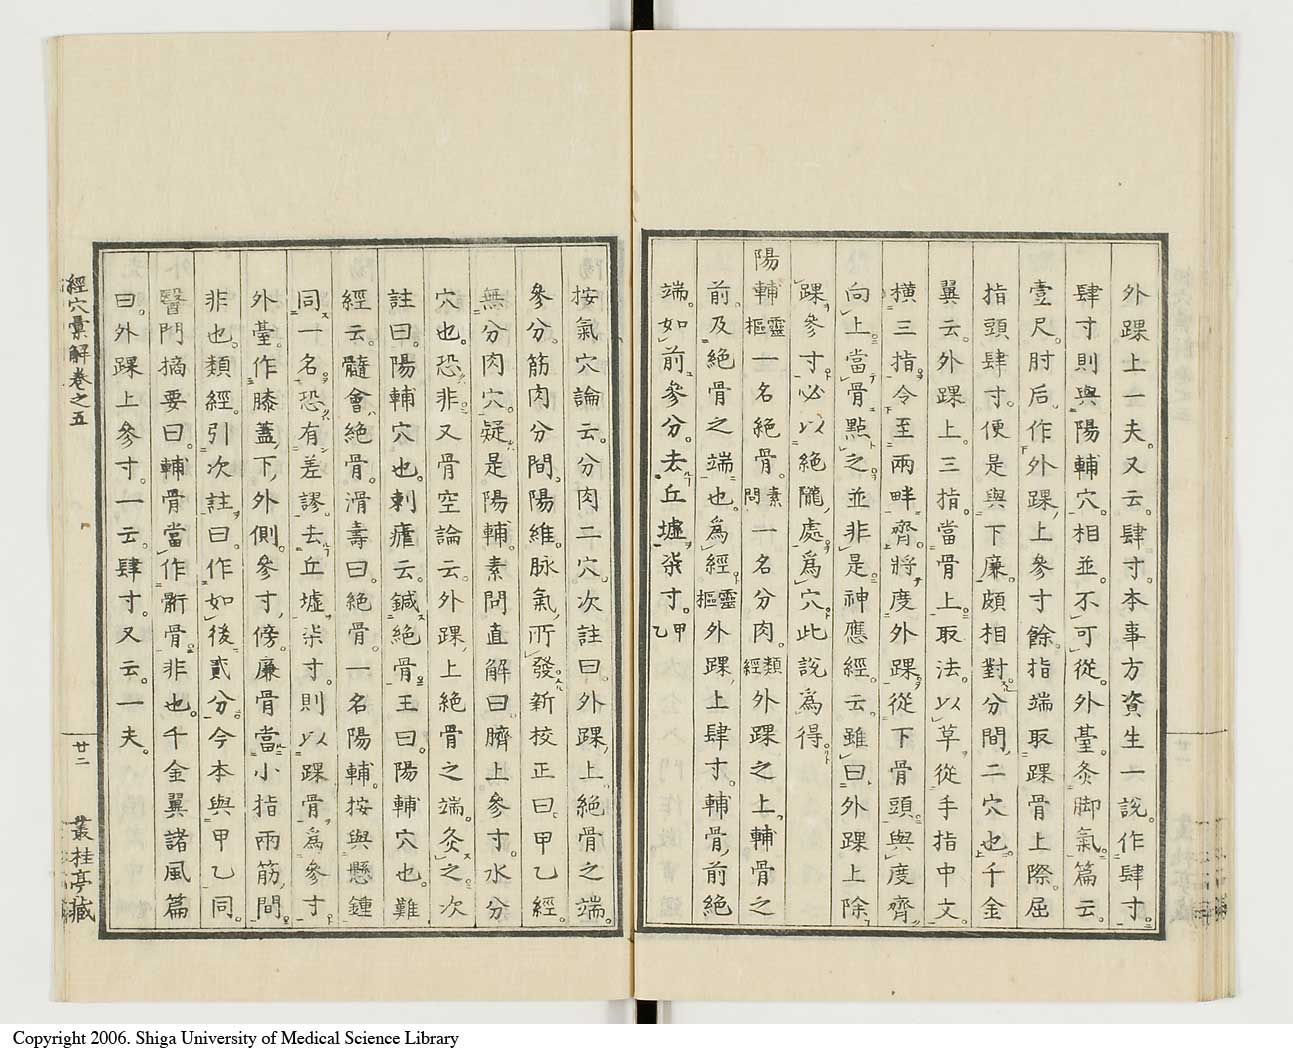 外踝上一夫。又云。肆寸。本事方資生一說。作肆寸。
肆寸則與陽輔穴。相並。不可從。外臺。灸脚氣。篇云。
壹尺。肘后。作外踝上參寸餘。指端取踝骨上際。屈
指頭肆寸。便是與下廉。頗相對。分間。二穴也。千金
翼云。外踝上。三指。當骨上。取法。以草。從手指中文。
橫三指。令至兩畔齊。將度外踝。從下骨頭與度齊
向上。當骨點之。並非是。神應經。云。雖曰外踝上除
踝參寸。必以絕隴處爲穴。此說爲得。
陽輔靈樞一名絕骨。素問一名分肉。類經外踝之上。輔骨之
前。及絕骨之端也。爲經。靈樞外踝上肆寸。輔骨前絕
端。如前參分。去丘墟柒寸。甲乙
按氣穴論云。分肉二穴。次註曰。外踝上絕骨之端。
參分。筋肉分間。陽維。脉氣所發。新校正曰。甲乙經。
無分肉穴。疑是陽輔。素問直解曰。臍上參寸。水分
穴也。恐非。又骨空論云。外踝上絕骨之端。灸之。次
註曰。陽輔穴也。刺瘧云。鍼絕骨。王曰。陽輔穴也。難
經云。髓會絕骨。滑壽曰。絕骨。一名陽輔。按與懸鍾
同一名。恐有差謬。去丘墟柒寸。則以踝骨爲參寸
外臺。作膝蓋下。外側。參寸。傍廉骨當小指兩筋間
非也。類經。引次註曰。作如後貳分。今本與甲乙同。
醫門摘要曰。輔骨當作䯒骨。非也。千金翼諸風篇
曰。外踝上參寸。一云。肆寸。又云。一夫。
經穴彙解卷之五
廿二
叢桂亭藏
Copyright 2006. Shiga University of Medical Science Library